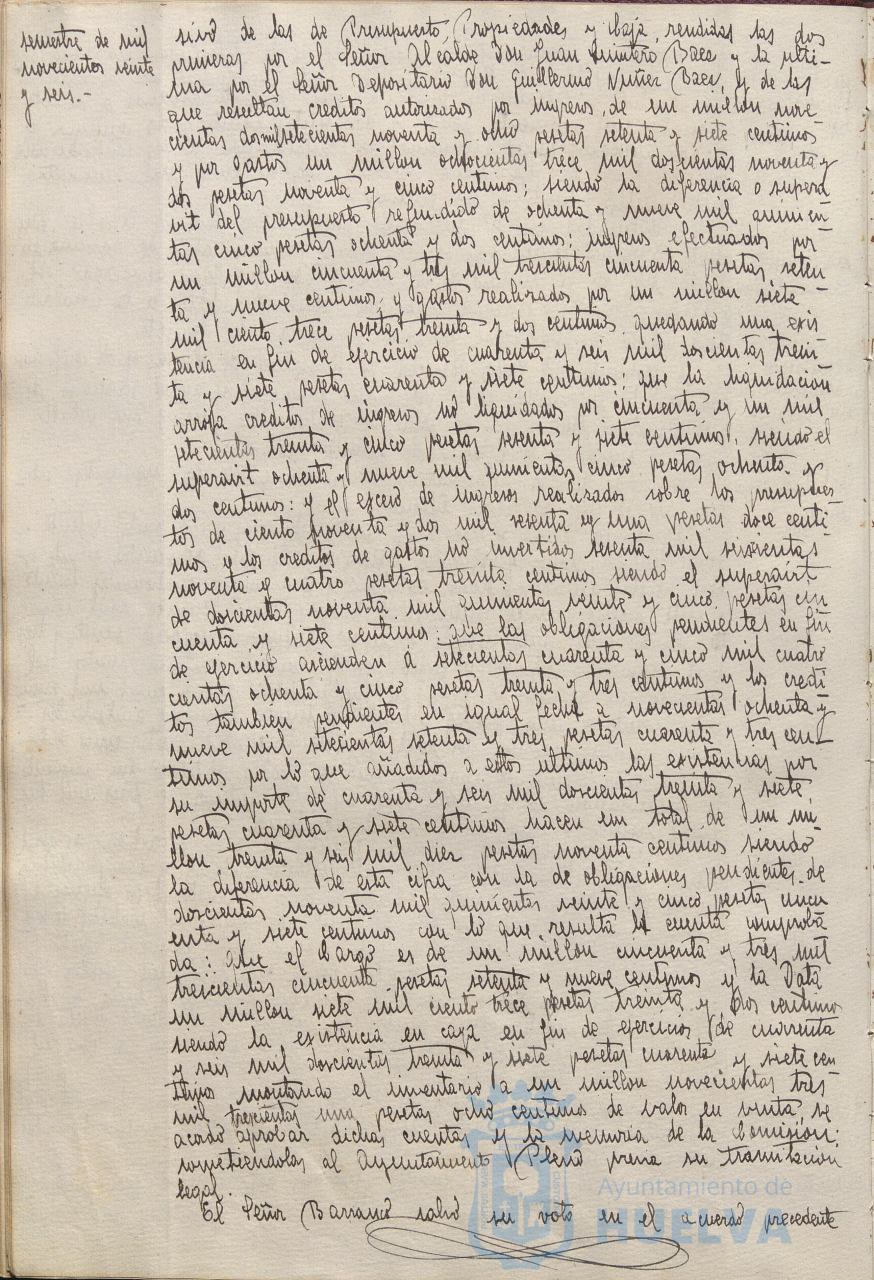 semestre de mil
novecientos veinte
y seis.-
sivo de las de Presupuesto, Propiedades y Caja, rendidas las dos
primeras por el Señor Alcalde Don Juan Quintero Baez y la ulti-
ma por el Señor Depositario Don Guillermo Nuñez Baez, y de las
que resultan creditos autorizados por ingresos, de un millon nove
cientas dosmilsetecientas noventa y ocho pesetas setenta y siete centimos
y por Gastos un millon ochocientas trece mil doscientas noventa y
dos pesetas noventa y cinco centimos; siendo la diferencia o supera
vit del presupuesto refundido de ochenta y nueve mil quinien
tas cinco pesetas ochenta y dos centimos; ingresos efectuados por
un millon cincuenta y tres mil trescientas cincuenta pesetas seten
ta y nueve centimos, y gastos realizados por un millon siete
mil ciento trece pesetas treinta y dos centimos quedando una exis
tencia en fin de ejercicio de cuarenta y seis mil doscientas trein
ta y siete pesetas cuarenta y siete centimos; que la liquidacion
arroja creditos de ingresos no liquidados por cincuenta y un mil
setecientas treinta y cinco pesetas sesenta y siete centimos, siendo el
superavit ochenta y nueve mil quinientas cinco pesetas ochenta y
dos centimos: y el exceso de ingresos realizados sobre los presupues
tos de ciento noventa y dos mil sesenta y una pesetas doce centi
mos y los creditos de gastos no invertidos sesenta mil seiscientas
noventa y cuatro pesetas treinta centimos siendo el superavit
de doscientas noventa mil quinientas veinte y cinco pesetas cin
cuenta y siete centimos: que las obligaciones pendientes en fin
de ejercicio ascienden á setecientas cuarenta y cinco mil cuatro
cientas ochenta y cinco pesetas treinta y tres centimos y los credi
tos tambien pendientes en igual fecha a novecientas ochenta y
nueve mil setecientas setenta y tres pesetas cuarenta y tres cen
timos por lo que añadidos a estos ultimos las existencias por
su importe de cuarenta y seis mil doscientas treinta y siete
pesetas cuarenta y siete centimos hacen un total de un mi
llon treinta y seis mil diez pesetas noventa centimos siendo
la diferencia de esta cifra con la de obligaciones pendientes de
doscientas noventa mil quinientas veinte y cinco pesetas cincu
enta y siete centimos con lo que resulta la cuenta comproba
da: que el Cargo es de un millon cincuenta y tres mil
trescientas cincuenta pesetas setenta y nueve centimos y la Data
un millon siete mil ciento trece pesetas treinta y dos centimos
siendo la existencia en caja en fin de ejercicios de cuarenta
y seis mil doscientas treinta y siete pesetas cuarenta y siete cen
timos montando el inventario a un millon novecientas tres
mil trescientas una pesetas ocho centimos de valor en venta, se
acordó aprobar dichas cuentas y la memoria de la Comisión;
sometiendolas al Ayuntamiento Pleno previa su tramitacion
legal.
El Señor Barranco salvó su voto en el acuerdo precedente
Ayuntamiento de
HUELVA